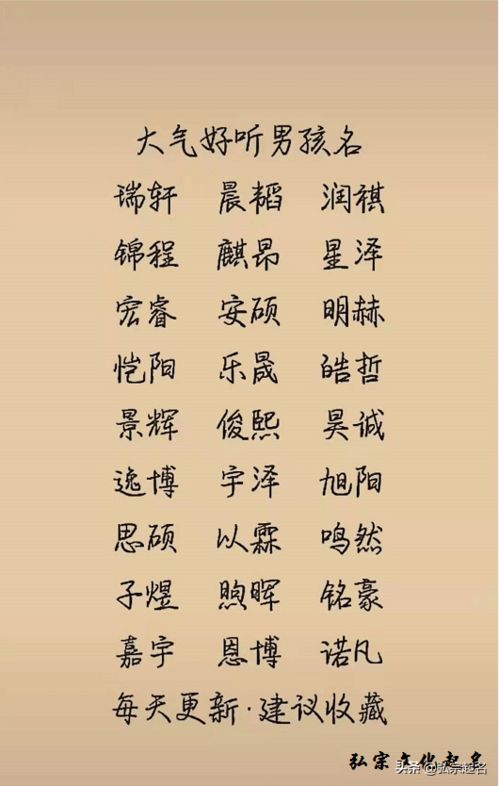 大气好听男孩名
瑞轩 晨韬 润祺
锦程 麒昂 星泽
宏睿 安硕 明赫
恺阳 乐晟 皓哲
景辉 俊熙 昊诚
逸博 宇泽 旭阳
思硕 以霖 鸣然
子煜 煦晖 铭豪
嘉宇 恩博 诺凡
每天更新·建议收藏
弘宗文化起名
头条 @弘宗起名